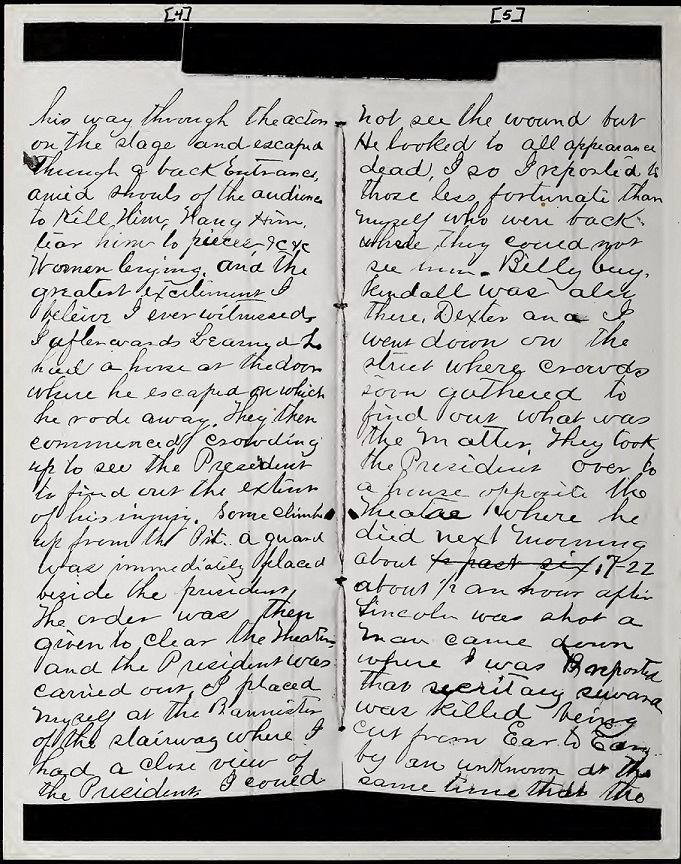 [4]
his way through the actors
on the stage and escaped
through a back Entrance,
amid shouts of the audience
to Kill Him, Hang Him,
tear him to pieces &c &c
Women crying, and the
greatest excitement I
beleive I ever witnessed,
I afterwards Learned he
had a horse at the door
where he escaped on which
he rode away. They then
commenced crowding
up to see the President
to find out the extent
of his injury. Some climbed
up from the Pit. a guard
was immediately placed
beside the president,
The order was then
given to clear the Theatre,
and the President was
carried out, I placed
myself at the Bannister
of the stairway where I
had a close view of
the President, I could
[5]
not see the wound but
He looked to all appearance
dead, I so I reported to
those less fortunate than
myself who were back
where they could not
see him. Billy
Kendall was also
there. Dexter and I
went down on the
street where crowds
soon gathered to
find out what was
the matter. They took
the President over to
a house opposite the
Theatre where he
died next morning
about ½ past six, 17-22
about ½ an hour after
Lincoln was shot a
man came down
where I was & reported
that secritary seward
was killed being
cut from Ear to Ear
by an unknown at the
same time that the